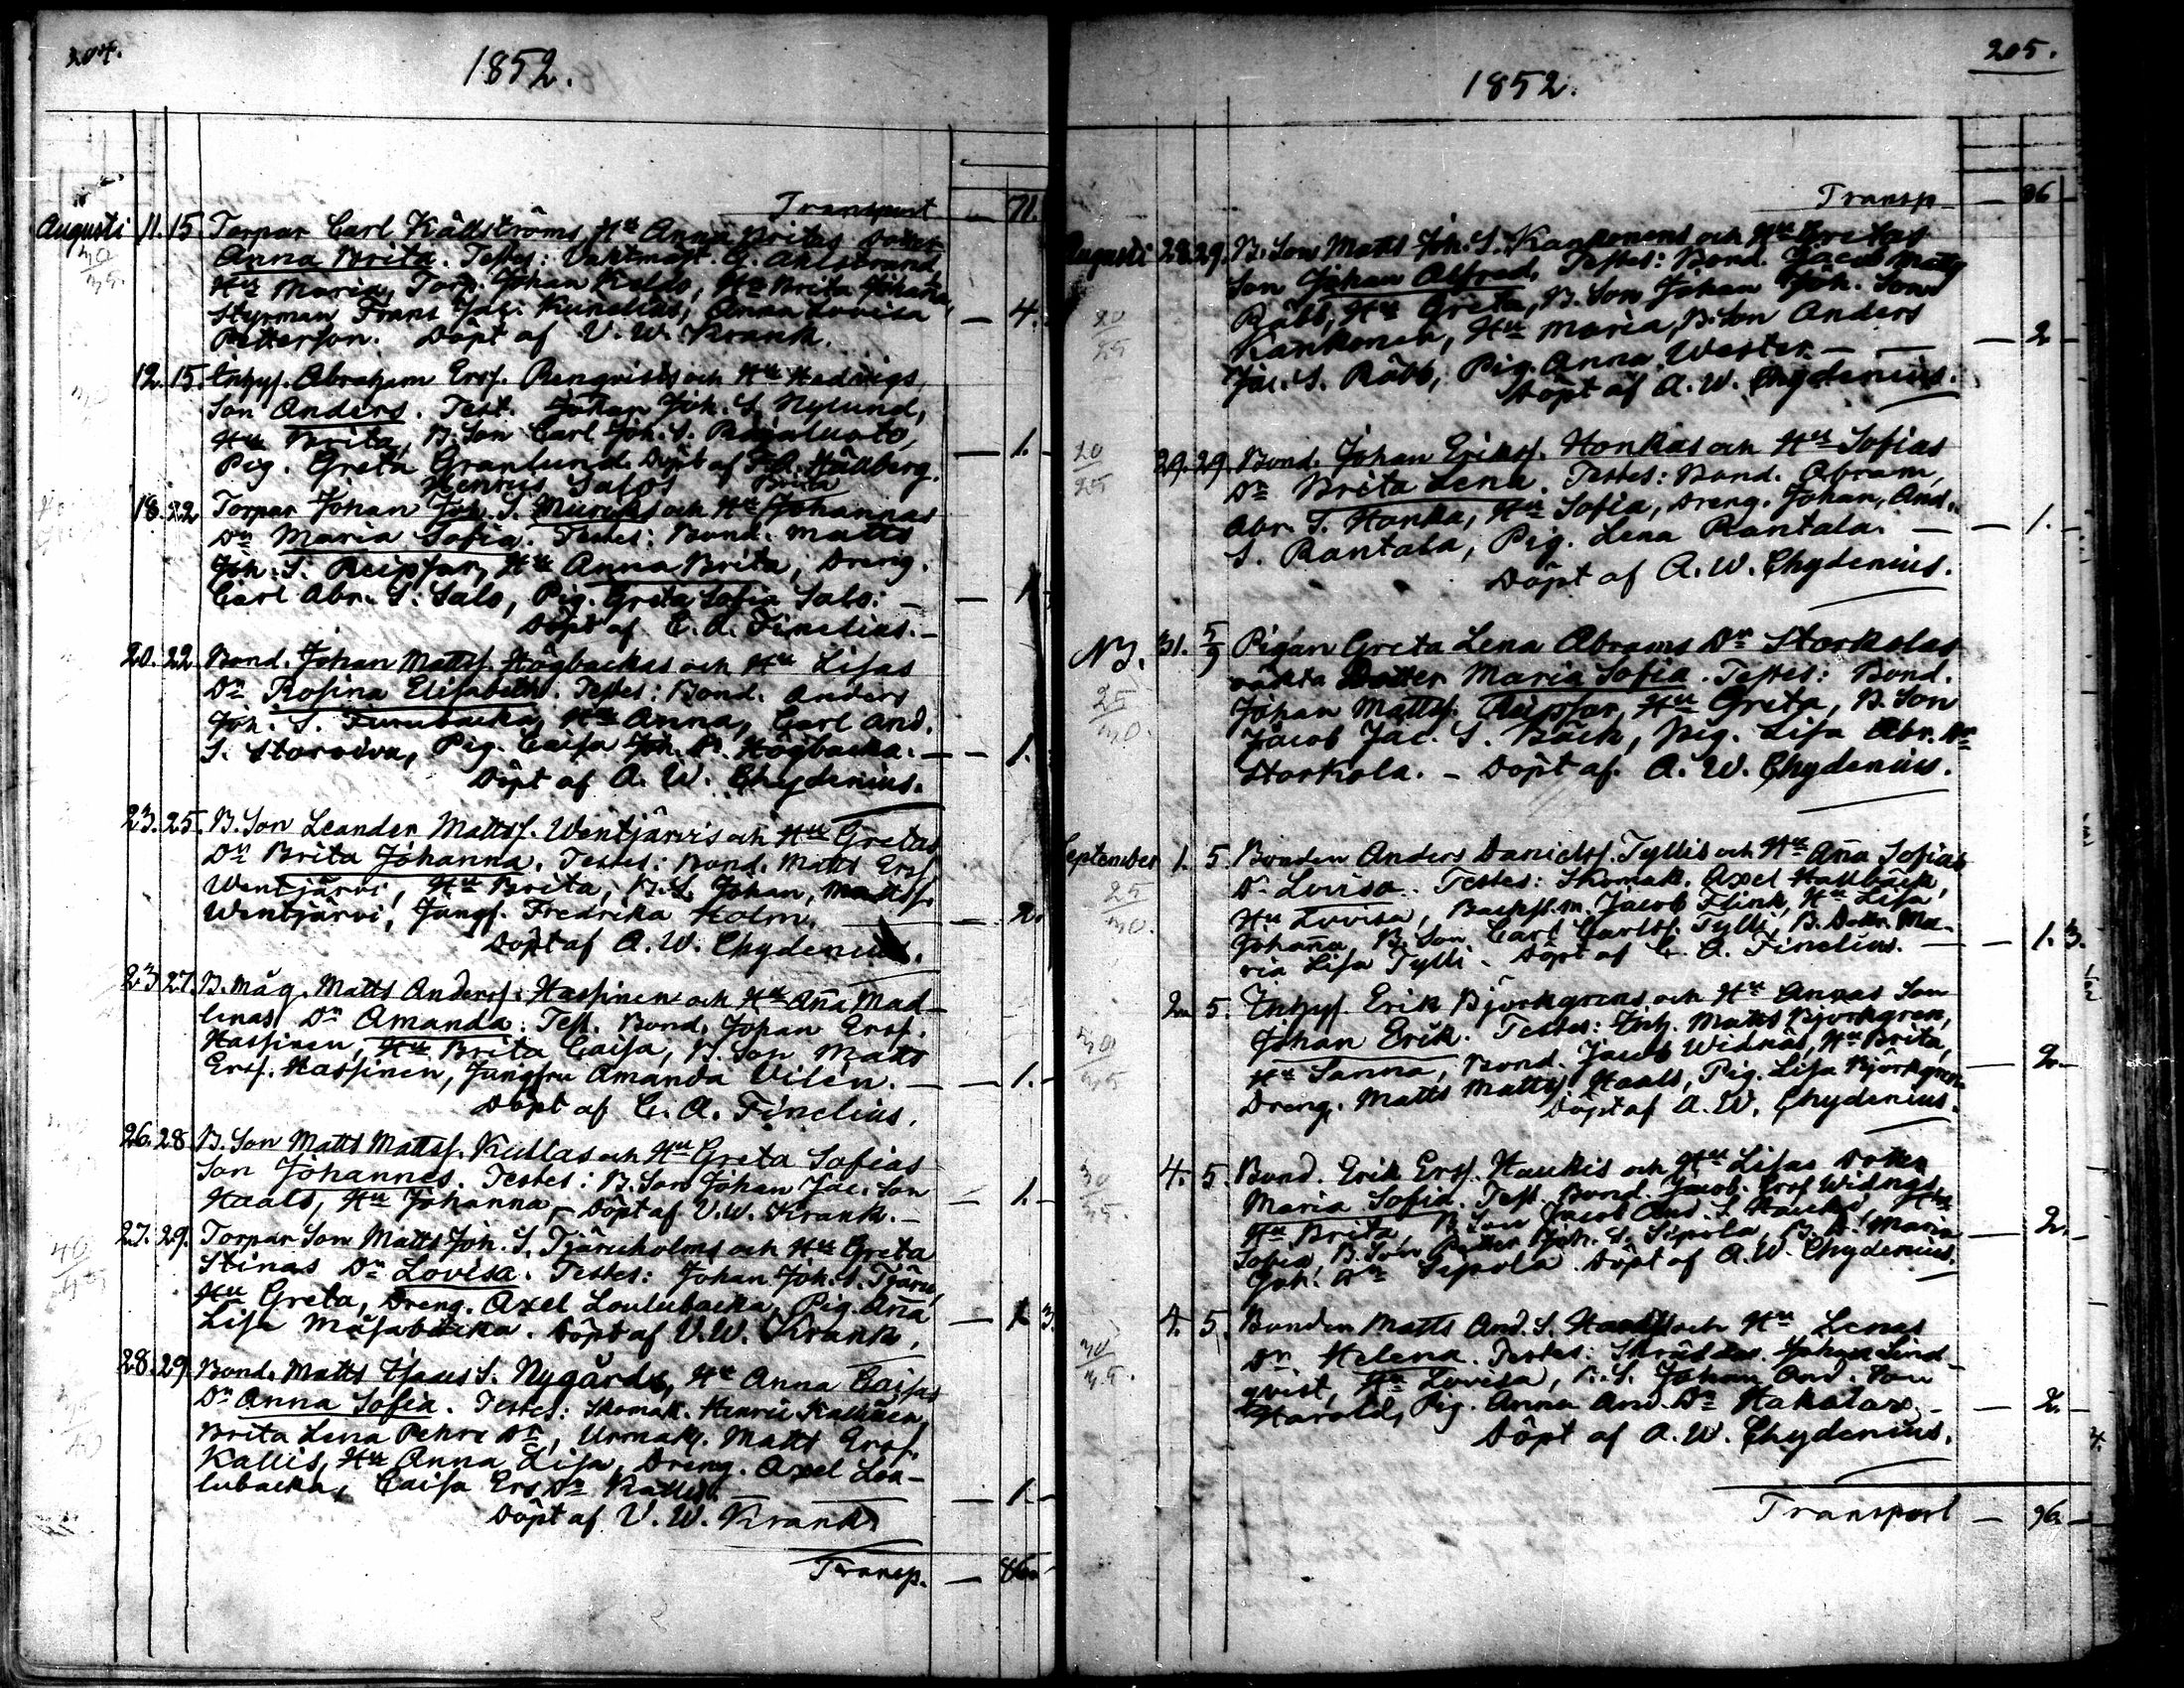 204.
1852.
Transport — 71.
Augusti 11. 15. Torpar Carl Källströms, Hu Anna Britas Dotter
Anna Brita. Testes: Vaktmäst. G. Ahlstrand,
Hu Maria, Torp. Johan Kaldo, Hu Brita Johanna,
Styrman Frans Jac. Kunelius, Anna Lovisa
Petterson. Döpt af V. W. Krank. — 4.
30
35.
12. 15. Inhys. Abraham Ersf. Renqvists och Hu Hedvigs
Son Anders. Test. Johan Joh. S. Nylund,
Hu Brita, B. Son Carl Joh. S. Rajaluoto,
Pig. Greta Granlund. Döpt af Hällberg. — 1.
Henrics Salos Brita
18. 22 Torpar Johan Joh. S. Muricks och Hu Johannas
Dr Maria Sofia. Testes: Bond. Matts
Joh. S. Reipsar, Hu Anna Brita, Dreng.
Carl Abr. S. Salo, Pig. Greta Sofia Salo. — 1
Döpt af C. A. Finelius. —
20. 22. Bond. Johan Mattsf. Högbackas och Hu Lisas
Dr Rosina Elisabeth. Testes: Bond. Anders
Joh. S. Furubacka, Hu Anna, Carl And.
S. Storoiva, Pig. Caisa Joh. D. Högbacka. — 1.
Döpt af A. W. Chydenius.
23. 25. B. Son Leander Mattsf. Wentjärvis och Hu Gretas
Dr Brita Johanna. Testes: Bond. Matts Ersf
Wentjärvi, Hu Brita, B. S. Johan Mattsf.
Wentjärvi, Jungf. Fredrika Holm. — 2.
Döpt af A. W. Chydenius.
23 27. B. Måg. Matts Andersf. Hassinen och Hu Aña Mad-
lenas Dr Amanda. Test. Bond. Johan Ersf.
Hassinen, Hu Brita Caisa, B. Son Matts
Ersf. Hassinen, Jungfru Amanda Vilén. — 1. —
Döpt af C. A. Finelius.
26. 28 B. Son Matts Mattsf. Kullas och Hu Greta Sofias
Son Johannes. Testes: B. Son Johan Jac. Son
Haals, Hu Johanna, — Döpt af V. W. Krank. — 1. —
27. 29. Torpar Son Matts Joh. S. Tjäruholms och Hu Greta
Stinas Dr Lovisa. Testes: Johan Joh. S. Tjäru,
Hu Greta, Dreng. Axel Loulubacka, Pig. Aña
Lisa Måsabacka. Döpt af V. W. Krank. — 1 3.
28. 29. Bond. Matts Isacs S. Nygårds, Hu Anna Caisas
Dr Anna Sofia. Testes: Skomak. Henric Kallinen,
Brita Lena Pehrs Dr, Urmak. Matts Ersf.
Kallis, Hu Anna Lisa, Dreng. Axel Lou-
lubacka, Caisa Ers Dr Kallis. — 1. —
Döpt af V. W. Krank
Transp. — 86.
205.
1852.
Transp — 86
Augusti 28. 29. B. Son Matts Joh. S. Kankonens och Hu Gretas
Son Johan Alfred. Testes: Bond. Jacob Matts
Son Räbb, Hu Greta, B. Son Johan Joh. Son
Kankonen, Hu Maria, B. Son Anders
Jac. S. Räbb, Pig. Anna Wester. — 2
Döpt af A. W. Chydenius.
20
25
29. 29. Bond. Johan Eriksf. Honkas och Hu Sofias
Dr Brita Lena. Testes: Bond. Abram
Abr. S. Honka, Hu Sofia, Dreng. Johan And.
S. Rantala, Pig. Lena Rantala. — 1.
Döpt af A. W. Chydenius.
20
25
NB. 31. 5/9 Pigan Greta Lena Abrams Dr Storkolas
oäkta Dotter Maria Sofia. Testes: Bond.
Johan Mattsf. Reipsar, Hu Greta, B. Son
Jacob Jac. S. Bäck, Pig. Lisa Abr. Dr
Storkola. — Döpt af. A. W. Chydenius.
25
30.
September 1. 5. Bonden Anders Danielsf. Tyllis och Hu Aña Sofias
Dr Lovisa. Testes: Skomak. Axel Hallbäck,
Hu Lovisa, Jacob Flink, Hu Lisa
Johaña, B. Son Carl Carlsf. Tylli, B. Dotter Ma-
ria Lisa Tylli. Döpt af C. A. Finelius. — 1. 3.
25
30.
2. 5. Inhys. Erik Björkgrens och Hu Annas Son
Johan Erik. Testes: Inh. Matts Björkgren,
Hu Sanna, Bond. Jacob Widnäs, Hu Brita,
Dreng. Matts Mattsf Haals, Pig. Lisa Björkgren — 2.
Döpt af A. W. Chydenius.
30
35
4. 5. Bond. Erik Ersf. Haukis och Hu Lisas Dotter
Maria Sofia. Test. Bond. Jacob Ersf
Hu Brita, B. Son Jacob And. S. Hauki, Hu
Sofia, B. Son Petter Joh. S. Sipola, B. D. Maria
Joh. Dr Sipola Döpt af A. W. Chydenius. — 2.
30
35.
4. 5. Bonden Matts And. S. och Hu Lenas
Dr Helena. Testes: Skräddar. Johan Lind-
qvist, Hu Lovisa, B. S. Johan And. Son
Harald, Pig. Anna And. Dr Hakalax. — 2.
Döpt af A. W. Chydenius.
30
35.
Transport — 96. —